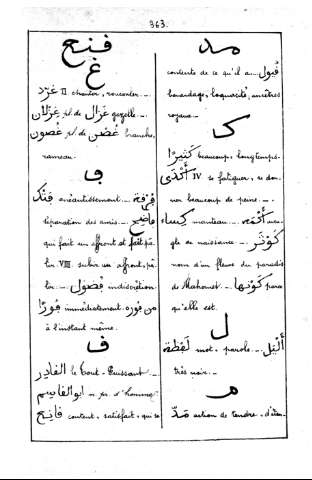 363.
فنح
غ
غرّد II chanter, roucouler. —
غزال pl. de غزلان gazelle. —
غصن pl. de غصون branche,
rameau.
ف
فتك anéantissement. — فرقة
séparation des amis. — فاضح
qui fait un affront et fait pâ-
lir VIII subir un affront, pâ-
lir. — فضول indiscrétion
من فوره immédiatement. فورًا
à l'instant même.
ف
القادر le tout-Puissant. —
ابو القاسم n. pr. d'homme.
قانع content, satisfait, qui se
مد
contente de ce qu'il a. — قيول
bavardage, loquacité, ancêtres
royaux. —
ك
كثيرًا beaucoup, longtemps. —
أكدى IV se fatiguer, se don-
ner beaucoup de peine. —
كساء manteau. — أكمه aveu-
gle de naissance. — كوثر
nom d'un fleuve du paradis
de Mahomet. — كونها parce
qu'elle est.
ل
لفظة mot, parole. — أليل
très noir. —
م
مدّ action de tendre, d'éten-